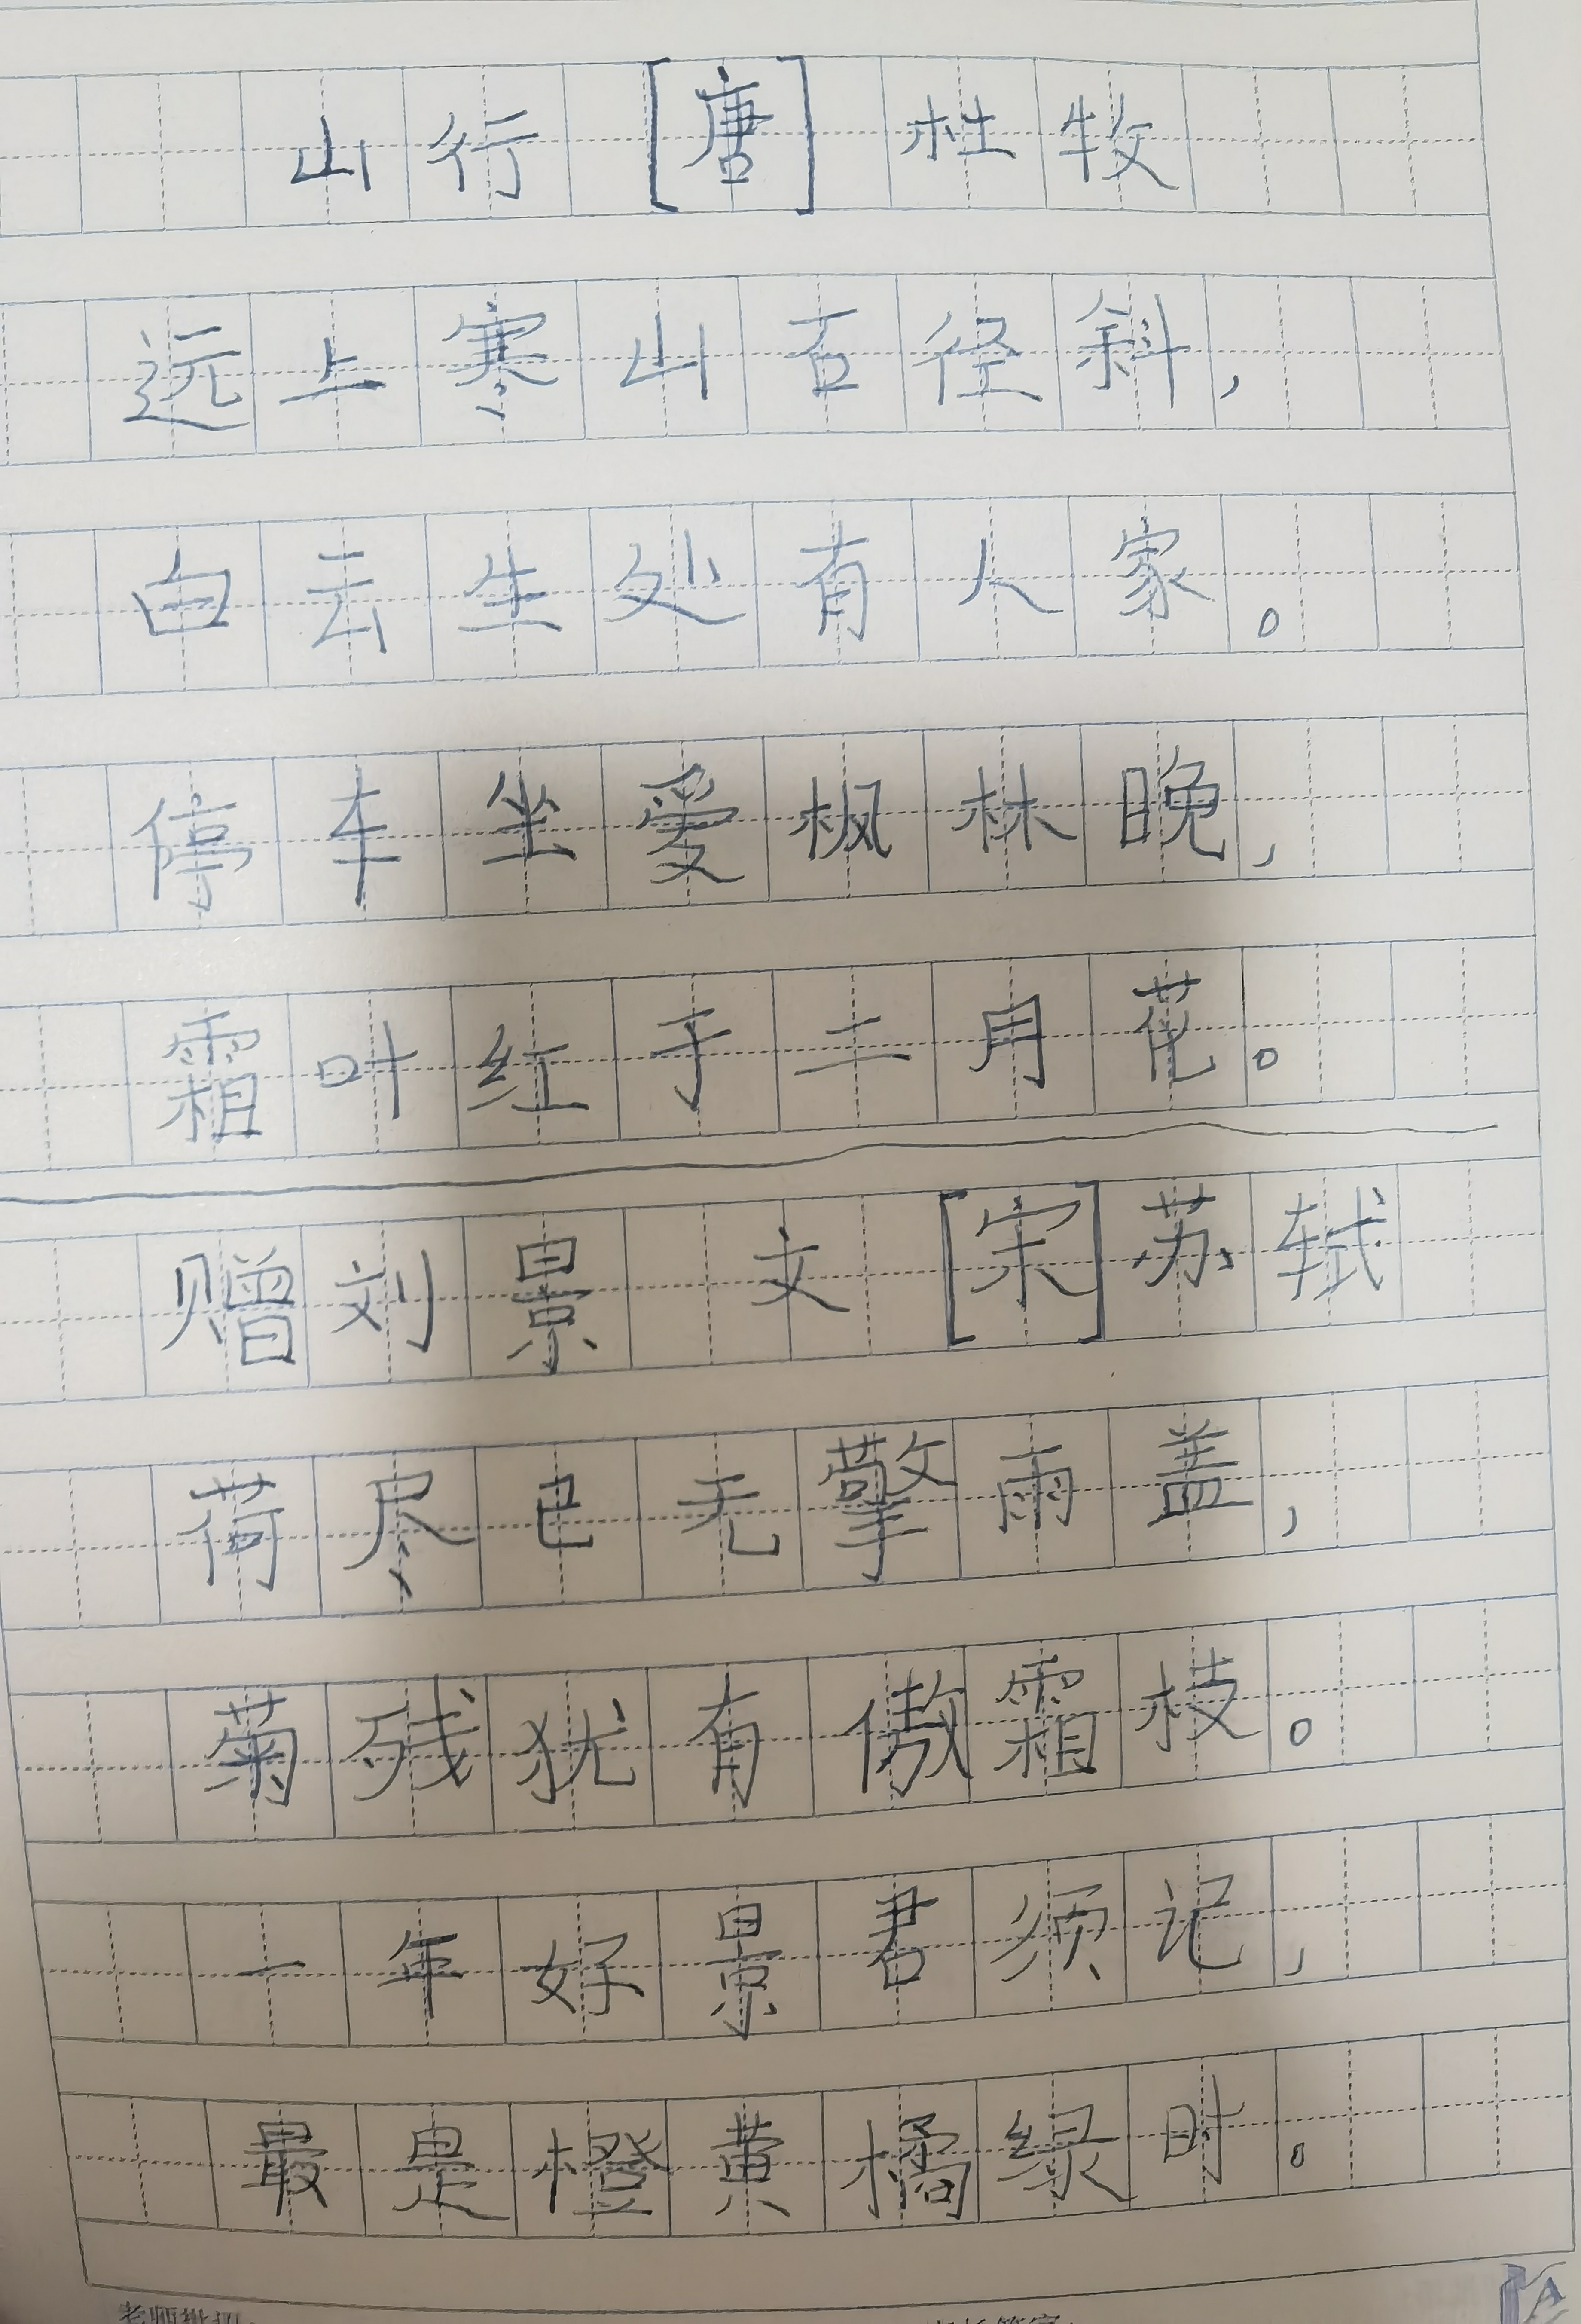 山行 [唐] 杜牧
远上寒山石径斜，
白云生处有人家。
停车坐爱枫林晚，
霜叶红于二月花。
赠刘景文 [宋] 苏轼
荷尽已无擎雨盖，
菊残犹有傲霜枝。
一年好景君须记，
最是橙黄橘绿时。